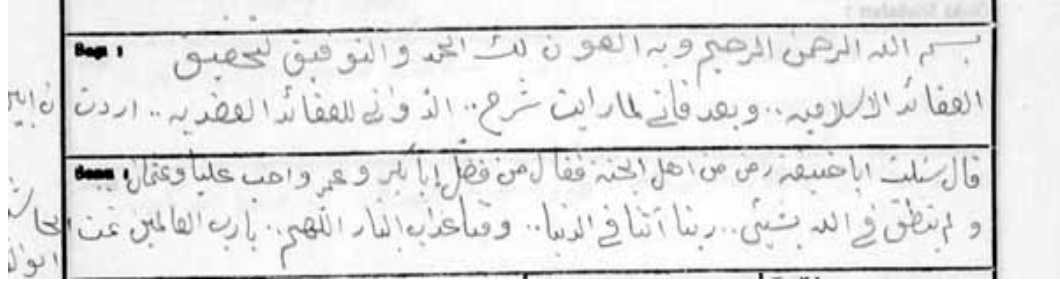 Başı :
بسم الله الرحمن الرحيم وبه العون لك الحمد والتوفيق لتحقيق
العقائد الاسلاميه .. وبعد فانى لما رايت شرح .. الدوانى للعقائد العضديه .. اردت
Sonu :
قال سئلت ابا حنيفة رض من اهل الجنة فقال من فضل ابا بكر و عمر واحب عليا وعثمان
و لم ينطق فى الله بشيئ .. ربنا آتنا فى الدنيا .. وقنا عذاب النار اللهم .. يا رب العالمين تمت